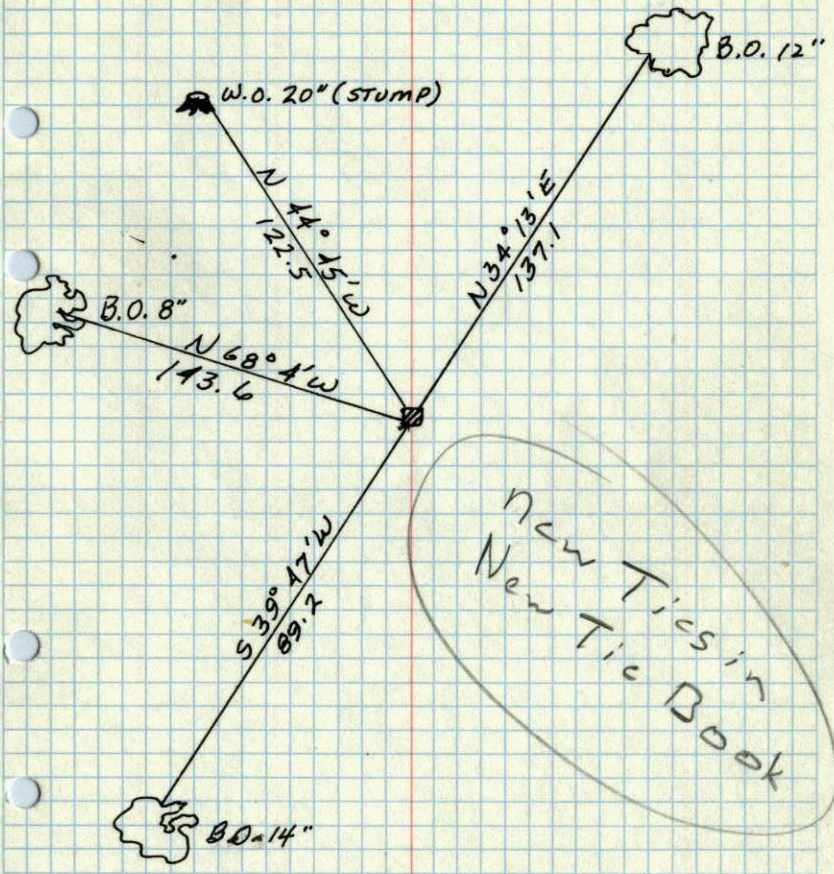 B.O. 12"
W.O. 20" (STUMP)
N 44° 45' W
122.5
N 34° 13' E
137.1
B.O. 8"
N 68° 4' W
143.6
S 39° 47' W
89.2
B.O. 14"
New Ties in
New Tie Book